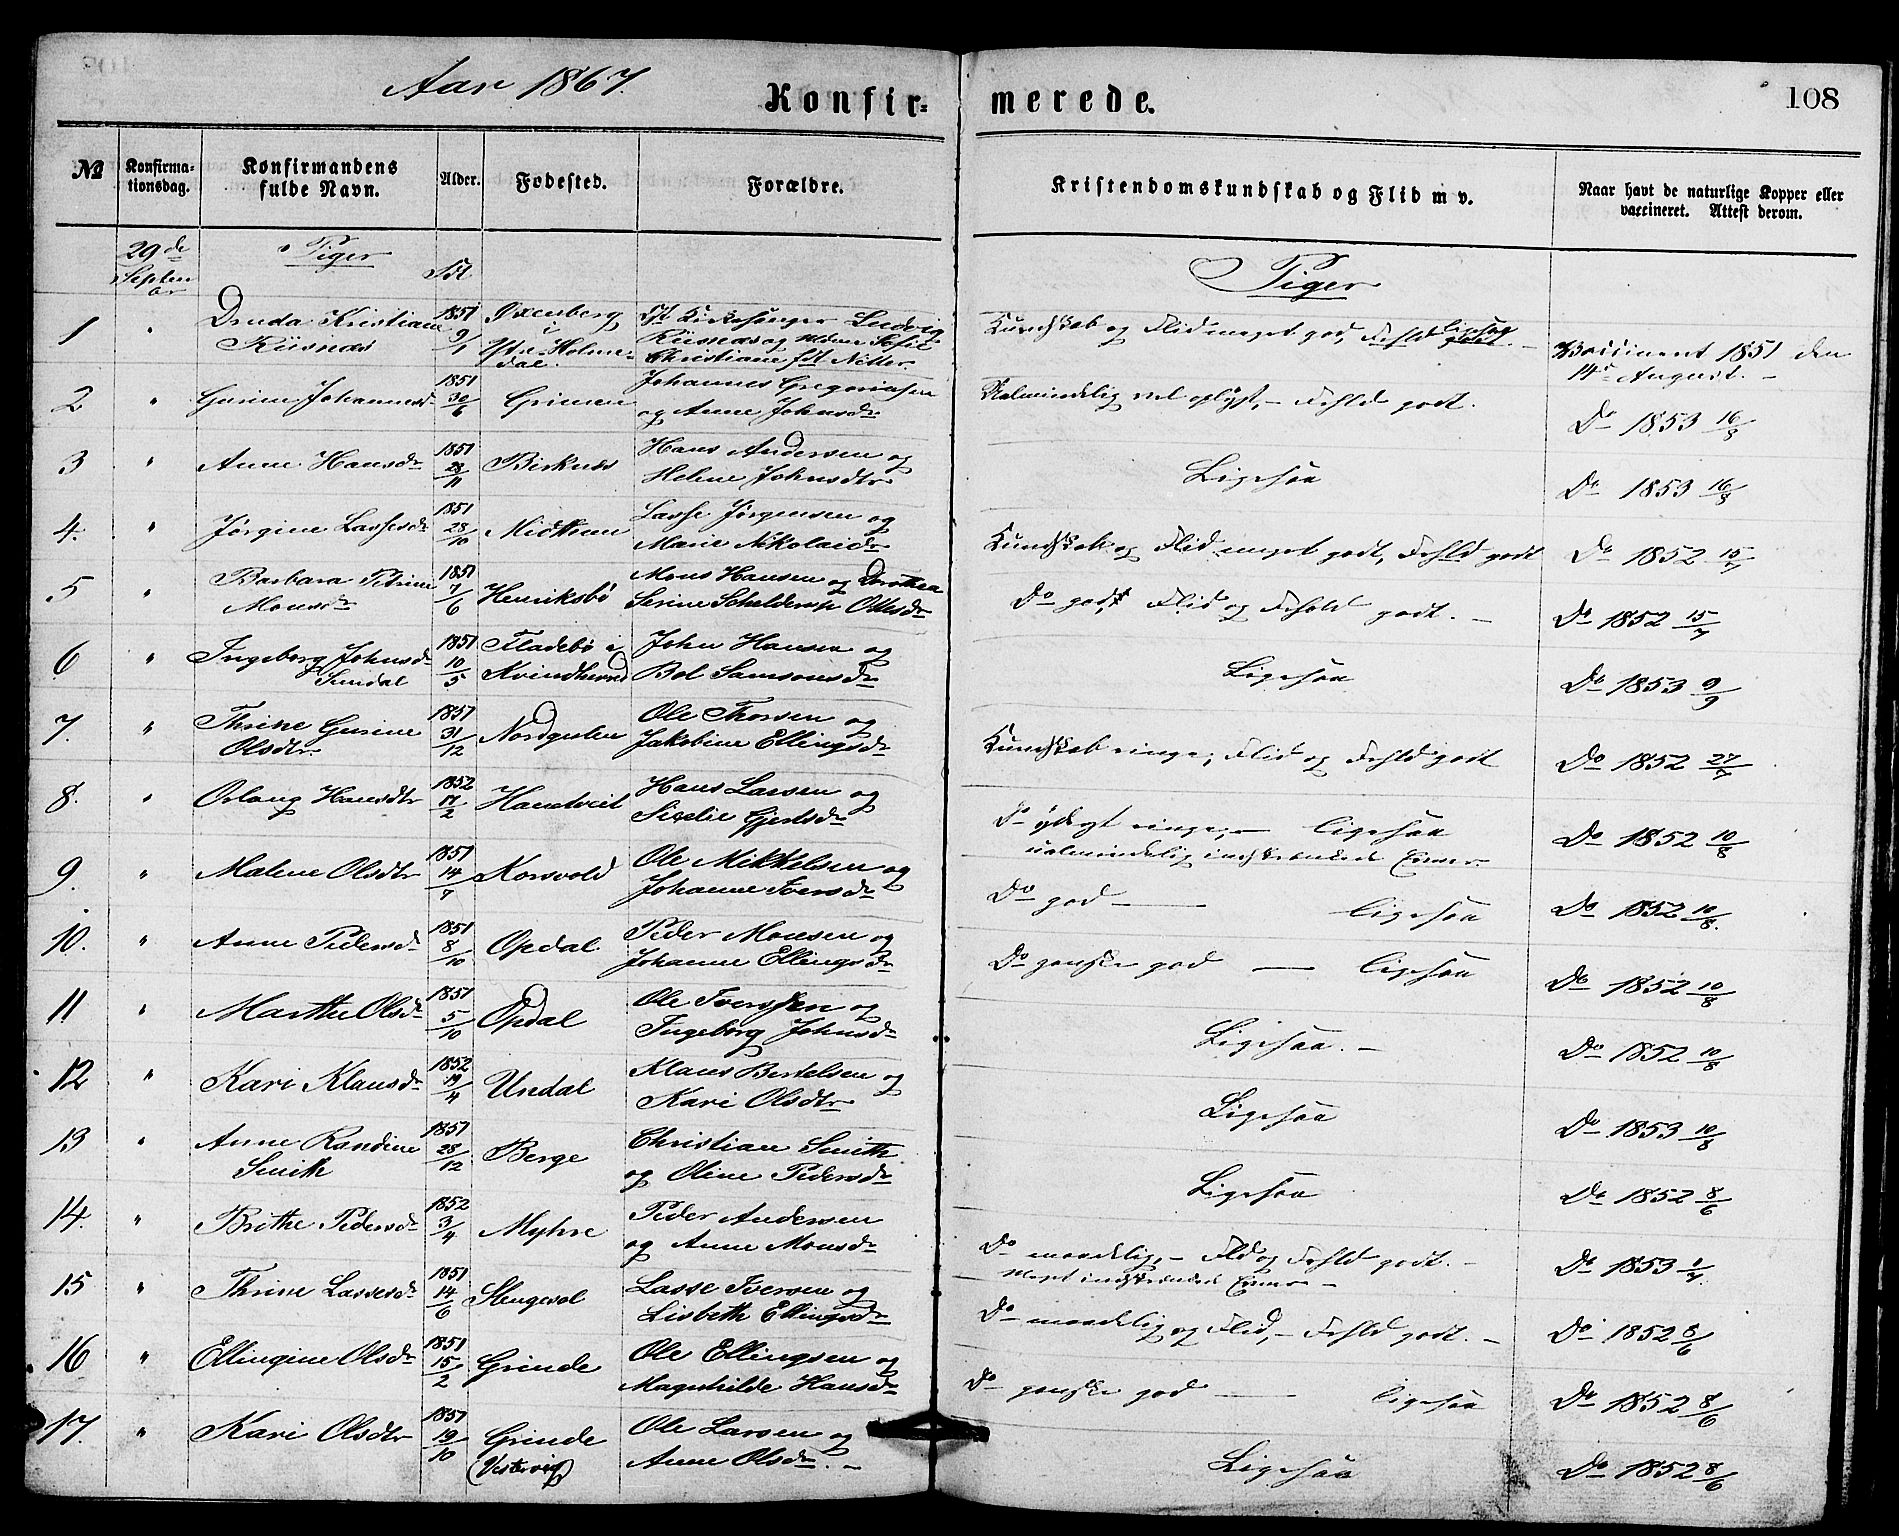 Aar 1867.
Konfir=
merede.
108
No
Konfirma=
tionsdag.
Konfirmandens
fulde Navn.
Alder.
Fødested.
Forældre.
Kristendomskundskab og Flid m v.
Naar havt de naturlige Kopper eller
vaccineret. Attest derom.
29de
Septem
ber
Piger
Piger
1
"
Druda Kristiane
Riisnæs
1851
9/1
Øxenberg
i
Ytre-Holme-
dal.
Kirkesanger Ludvig
Riisnæs og Sofie
Christiane fdt Nitter.
Kundskab og Flid meget god, Fhld ligesaa
Vaccineret 1851 den
14de August. -
2
"
Gurine Johannesdr
1851
30/6
Grinen
Johannes Gregoriusen
og Anne Johnsdr
Ualmindelig vel oplyst, - Fhld godt.
Do 1853 16/8
3
"
Anne Hansdr
1851
29/11
Birknes
Hans Andersen og
Helene Johnsdtr
Ligesaa
Do 1853 16/8
4.
"
Jørgine Lassesdr
1851
28/10
Midttun
Lasse Jørgensen og
Marie Nikolaidr
Kundskab og Flid meget godt, Fhld godt
Do 1852 15/7
5
"
Barbara Petrine
Monsdr
1851
7/6
Henriksbø
Mons Hansen og Dorothea
Serine Schelderup Ottesdr
Do godt, Flid og Forhold godt. -
Do 1852 15/7
6
"
Ingeborg Johnsdr
Sundal
1851
10/5
Fladebø i
Kvindherred
John Hansen og
Bol Samsonsdr
Ligesaa
Do 1853 9/9
7.
"
Thrine Gurine
Olsdtr.
1851
31/12
Nordgulen
Ole Thorsen og
Jakobine Ellingsdr
Kundskab ringe, Flid og Fhld godt
Do 1852 27/7
8.
"
Oslaug Hansdtr
1852
17/2
Hantveit
Hans Larsen og
Sirelie Gjertsdr
Do yderst ringe, - ligesaa
ualmindelig indskrænkede Evner -
Do 1852 10/8
9.
"
Malene Olsdtr
1851
14/7
Korsvold
Ole Mikkelsen og
Johanne Iversdr
Do god - ligesaa
Do 1852 10/8.
10.
"
Anne Pedersdr
1851
8/10
Opdal
Peder Monsen og
Johanne Ellingsdr
Do ganske god - ligesaa
Do 1852 10/8
11
"
Marthe Olsdr
1851
5/10
Opdal
Ole Iversen og
Ingeborg Johnsdr
Ligesaa. -
Do 1852 10/8
12
"
Kari Klausdr
1852
19/4
Undal
Klaus Bertelsen og
Kari Olsdtr
Ligesaa
Do 1853 10/8
13
"
Anne Randine
Smith
1851
28/12
Berge
Christian Smith
og Oline Pedersdr
Ligesaa
Do 1852 8/6
14.
"
Brithe Pedersdr
1852
3/4
Myhre
Peder Andersen
og Anne Monsdr
Do maadelig, - Flid og Fhld godt. -
Meget indskrænkede Evner -
Do 1853 1/7.
15
"
Thrine Lassesdr
1851
14/6
Slengesol
Lasse Iversen og
Lisbeth Ellingsdr
Do maadelig og Flid, - Fhld godt. -
Do 1852 8/6
16
"
Ellingine Olsdr
1851
15/2
Grinde
Ole Ellingsen og
Magnhilde Hansdr
Do ganske god - ligesaa
Do 1852 8/6
17.
"
Kari Olsdtr
1851
19/10
Grinde
(Vestervig)
Ole Larsen og
Anne Olsdr. -
Ligesaa
Do 1852 8/6